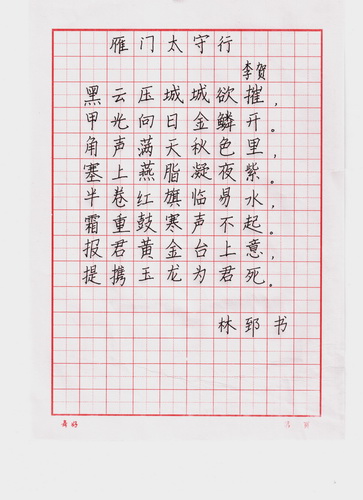 雁门太守行
李贺
黑云压城城欲摧，
甲光向日金鳞开。
角声满天秋色里，
塞上燕脂凝夜紫。
半卷红旗临易水，
霜重鼓寒声不起。
报君黄金台上意，
提携玉龙为君死。
林郅书